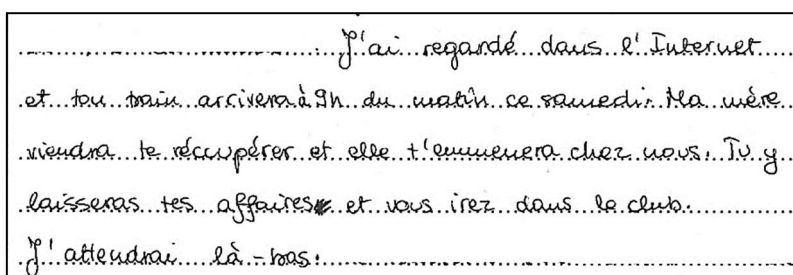 J'ai regardé dans l'Internet
et ton train arrivera à 9h du matin ce samedi. Ma mère
viendra te récupérer et elle t'emmenera chez nous. Tu y
laisseras tes affaires et vous irez dans le club.
J'attendrai là-bas.